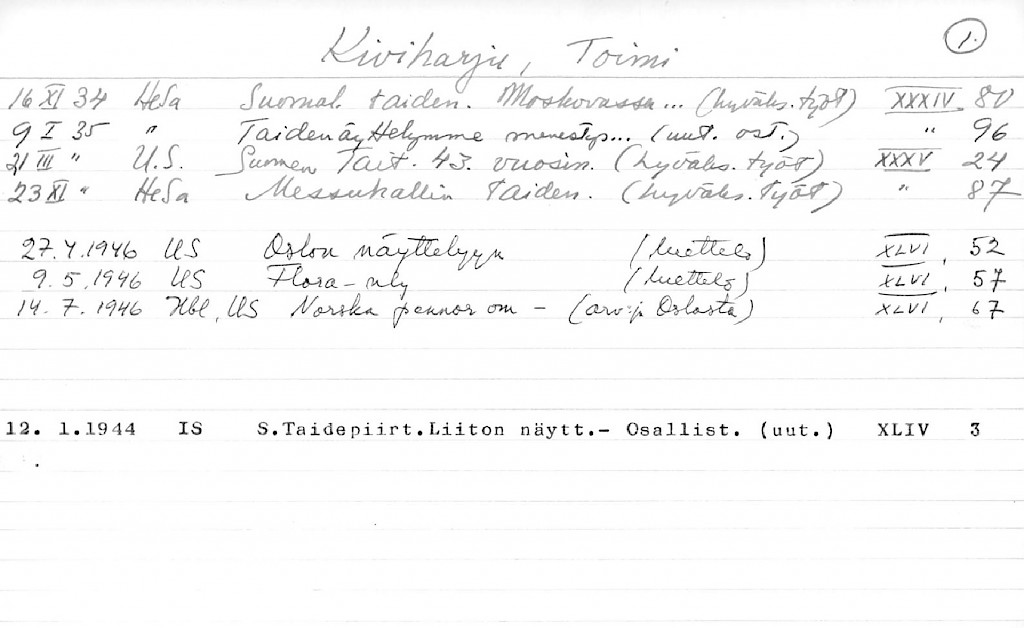 Kiviharju, Toimi
1.
16 XI 34 HeSa Suomal. taiden. Moskovassa... (hyväks. työt) XXXIV 80
9 I 35 " Taidenäyttelymme menestys... (uut. ost.) " 96
21 III " U.S. Suomen Tait. 43. vuosin. (hyväks. työt) XXXV 24
23 XI " HeSa Messuhallin taiden. (hyväks. työt) " 87
27.4.1946 US Oslon näyttelyyn (luettelo) XLVI, 52
9.5.1946 US Flora-nly (luettelo) XLVI, 57
14.7.1946 Hbl, US Norska pennor om - (arv:ja Oslosta) XLVI, 67
12. 1.1944 IS S.Taidepiirt.Liiton näytt.- Osallist. (uut.) XLIV 3